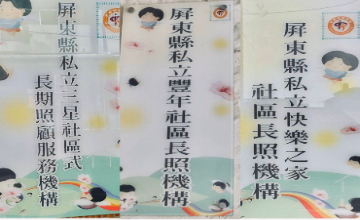 屏東縣私立三星社區式
長期照顧服務機構
屏東縣私立豐年社區長照機構
屏東縣私立快樂之家
社區長照機構